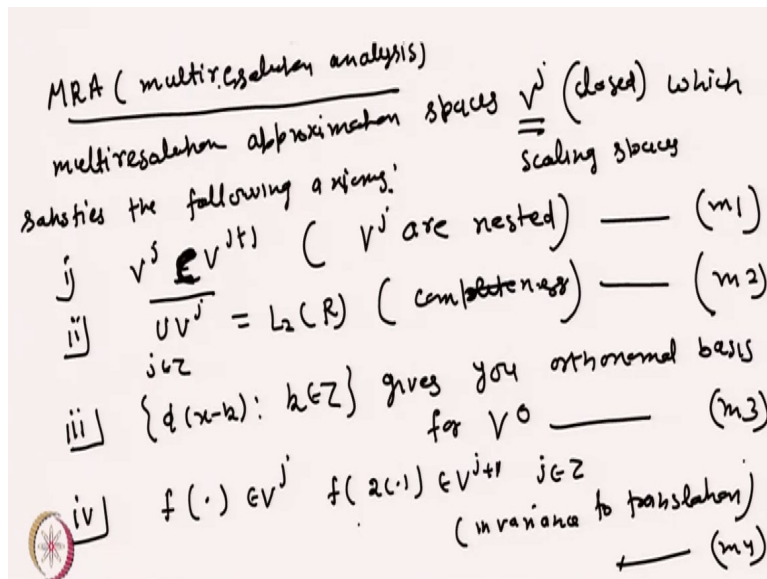 MRA (multiresolution analysis)
multiresolution approximation spaces V^j (closed) which
scaling spaces
satisfies the following axioms:
i) V^j ⊂ V^{j+1} ( V^j are nested) —— (m1)
ii) ∪V^j = L_2(R) (completeness) —— (m2)
j∈Z
iii) {ϕ(x-k): k∈Z} gives you orthonormal basis
for V^0 —— (m3)
iv) f(·) ∈V^j f(2(·)) ∈V^{j+1} j∈Z
(invariance to translation)
—— (m4)